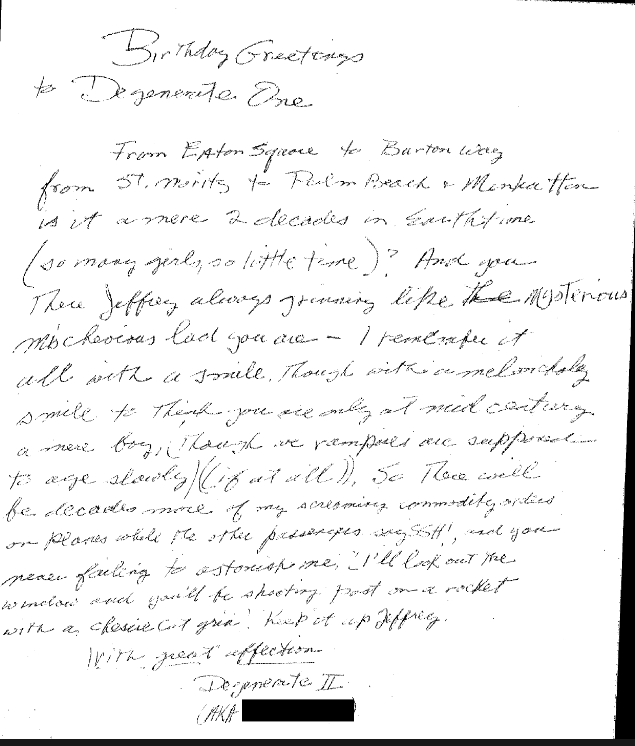 Birthday Greetings
to Degenerate One
From Eaton Square to Burton way
from St. Moritz to Palm Beach & Manhattan
is it a mere 2 decades in Earthtime
(so many girls, so little time)? And you
There Jeffrey always grinning like the Mysterious
mischevious lad you are – I remember it
all with a smile, Though with a melancholy
smile to Think you are only at mid century
a mere boy, (Though we vampires are supposed
to age slowly) ((if at all)), So There will
be decades more of my screaming commodity orders
on planes while the other passengers say SSH!, and you
never failing to astonish me, 'I'll look out the
window and you'll be shooting past on a rocket
with a chesire cat grin'. Keep it up Jeffrey.
With great affection
Degenerate II
(AKA